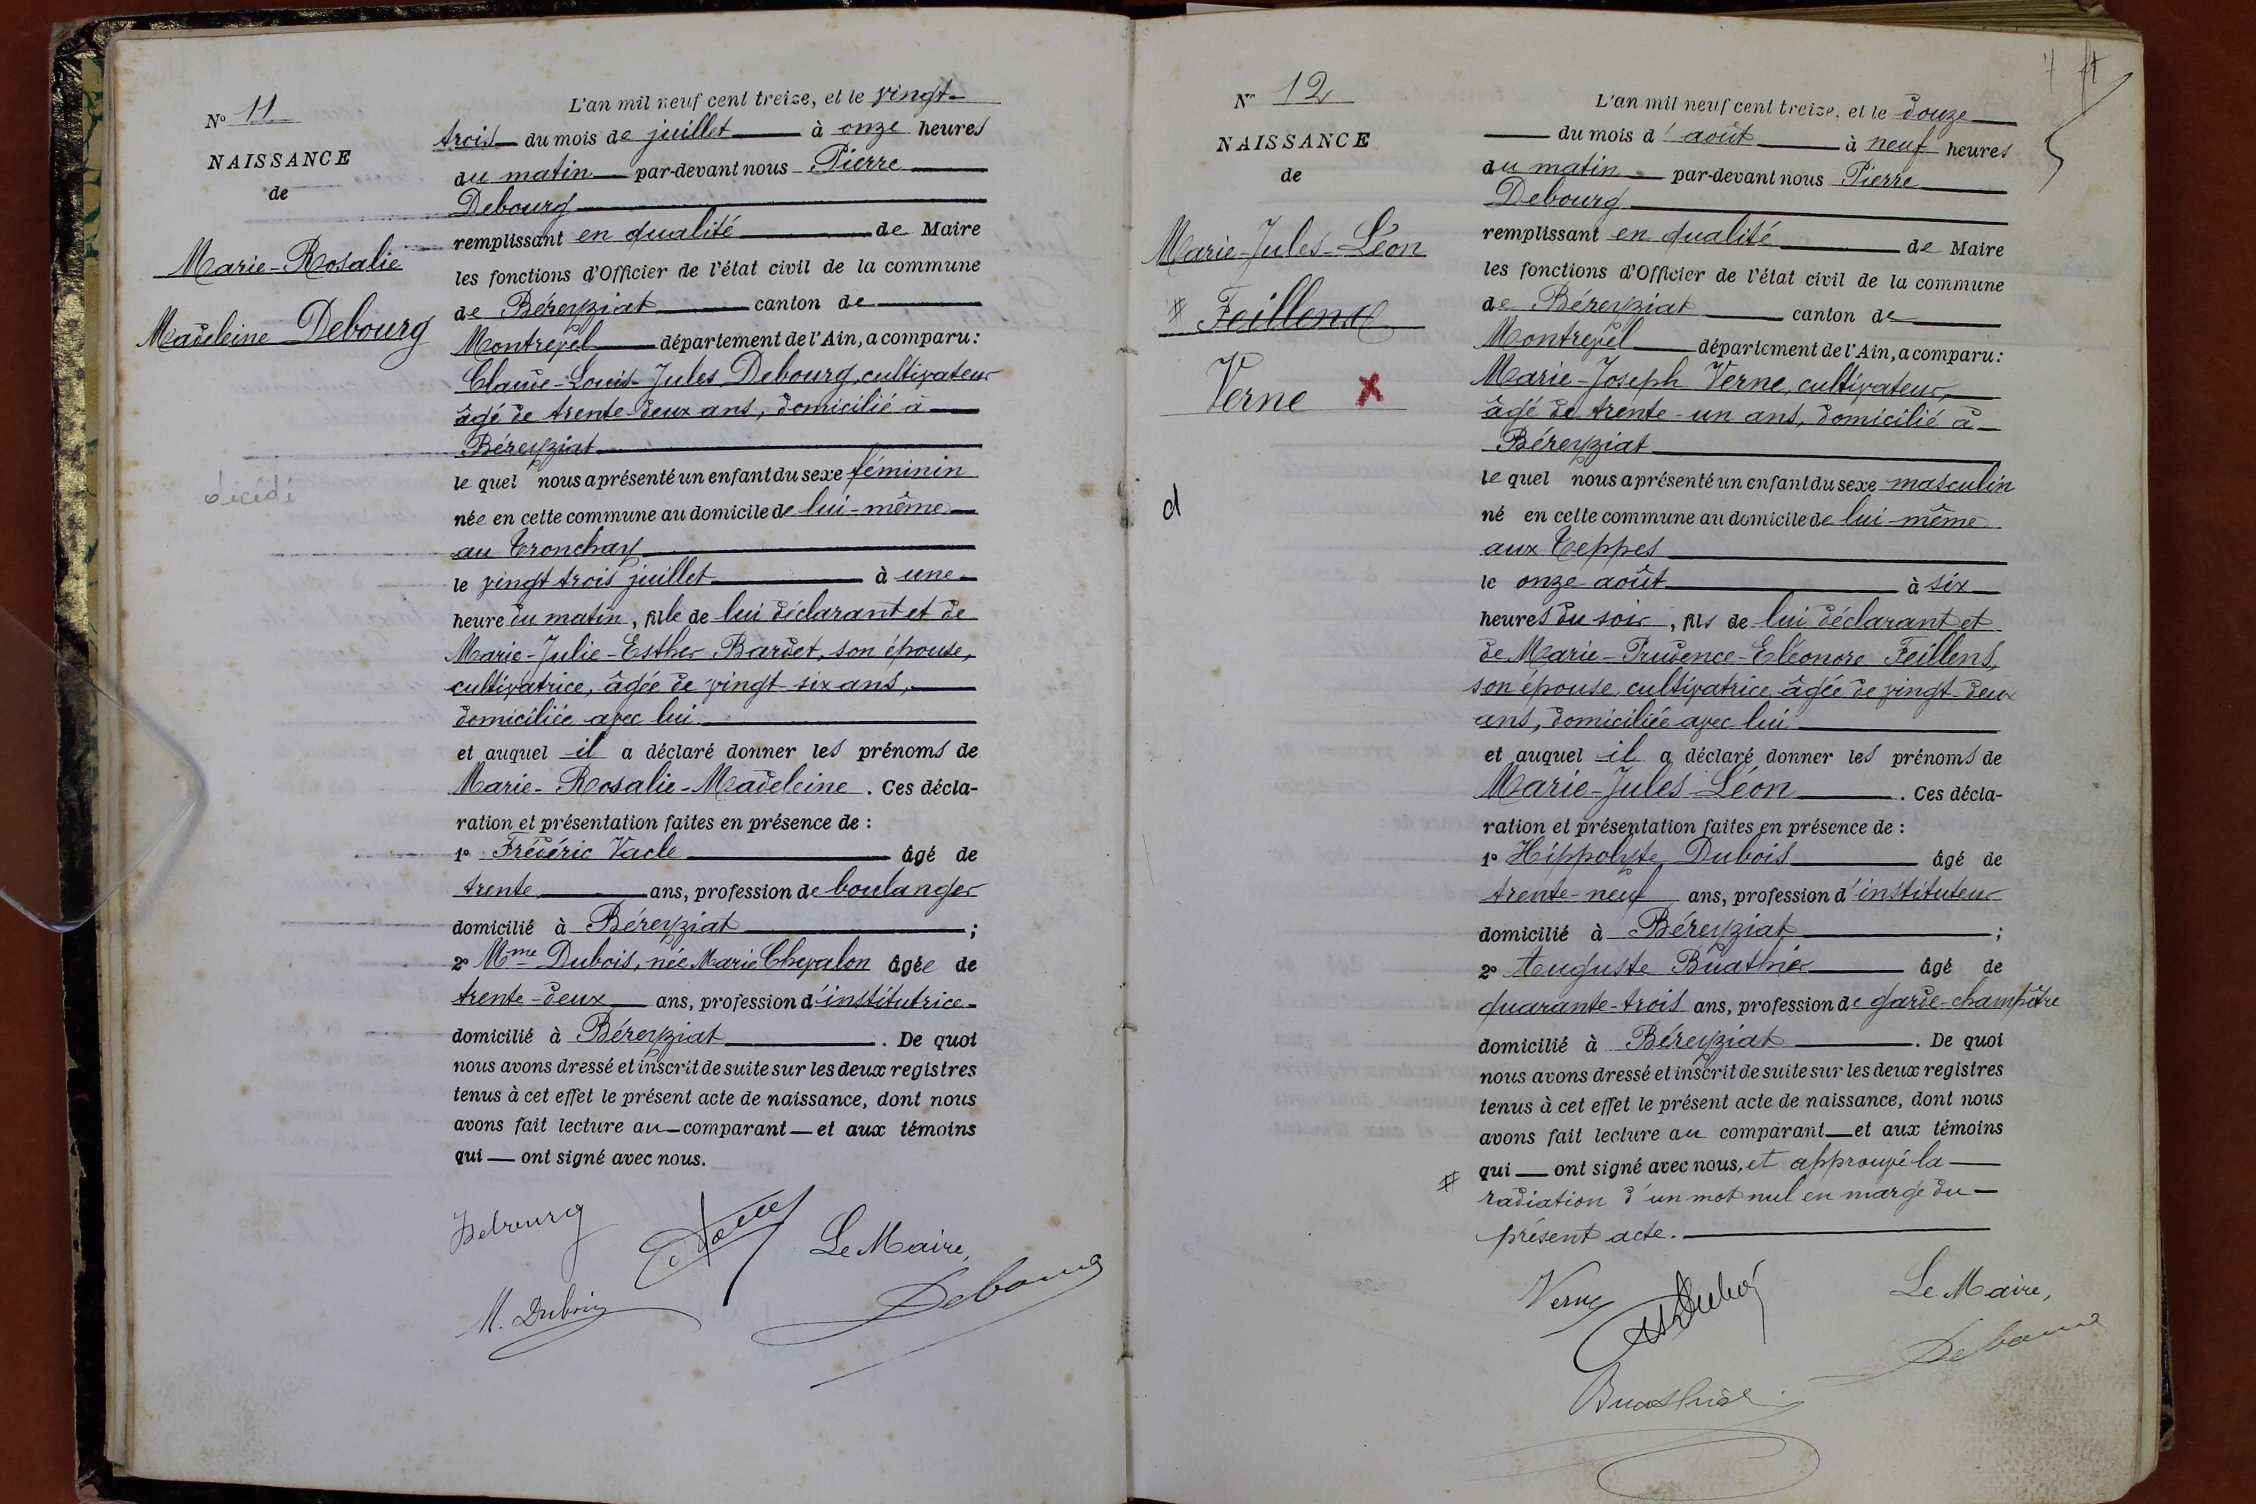 N° 11
NAISSANCE
de
Marie-Rosalie
Madeleine Debourg
décédé
L'an mil neuf cent treize, et le vingt-
trois du mois de juillet à onze heures
du matin par-devant nous Pierre
Debourg
remplissant en qualité de Maire
les fonctions d'Officier de l'état civil de la commune
de Béreyziat canton de
Montrevel département de l'Ain, a comparu :
Claude-Louis-Jules Debourg, cultivateur
âgé de trente-deux ans, domicilié à
Béreyziat
le quel nous a présenté un enfant du sexe féminin
née en cette commune au domicile de lui-même
au Tronchay
le vingt trois juillet à une
heure du matin, fille de lui déclarant et de
Marie-Julie-Esther Bardet, son épouse,
cultivatrice, âgée de vingt-six ans,
domiciliée avec lui
et auquel il a déclaré donner les prénoms de
Marie-Rosalie-Madeleine. Ces décla-
ration et présentation faites en présence de :
1° Frédéric Vacle âgé de
trente ans, profession de boulanger
domicilié à Béreyziat ;
2° Mme Dubois, née Marie Chevalon âgée de
trente-deux ans, profession d'institutrice
domicilié à Béreyziat. De quoi
nous avons dressé et inscrit de suite sur les deux registres
tenus à cet effet le présent acte de naissance, dont nous
avons fait lecture au comparant et aux témoins
qui ont signé avec nous.
Debourg
Le Maire,
M. Dubois
Debourg
7
N° 12
NAISSANCE
de
Marie-Jules-Léon
# Feillens
Verne X
d
L'an mil neuf cent treize, et le douze
du mois d'août à neuf heures
du matin par-devant nous Pierre
Debourg
remplissant en qualité de Maire
les fonctions d'Officier de l'état civil de la commune
de Béreyziat canton de
Montrevel département de l'Ain, a comparu :
Marie-Joseph Verne, cultivateur,
âgé de trente-un ans, domicilié à
Béreyziat
le quel nous a présenté un enfant du sexe masculin
né en cette commune au domicile de lui-même
aux Teppes
le onze août à six
heures du soir, fils de lui déclarant et
de Marie-Prudence-Eléonore Feillens,
son épouse, cultivatrice âgée de vingt-deux
ans, domiciliée avec lui
et auquel il a déclaré donner les prénoms de
Marie-Jules-Léon. Ces décla-
ration et présentation faites en présence de :
1° Hippolyte Dubois âgé de
trente-neuf ans, profession d'instituteur
domicilié à Béreyziat ;
2° Auguste Buathier âgé de
quarante-trois ans, profession de garde-champêtre
domicilié à Béreyziat. De quoi
nous avons dressé et inscrit de suite sur les deux registres
tenus à cet effet le présent acte de naissance, dont nous
avons fait lecture au comparant et aux témoins
qui ont signé avec nous, et approuvé la
# radiation d'un mot nul en marge du
présent acte.
Verne
Dubois
Le Maire,
Debourg
Buathier